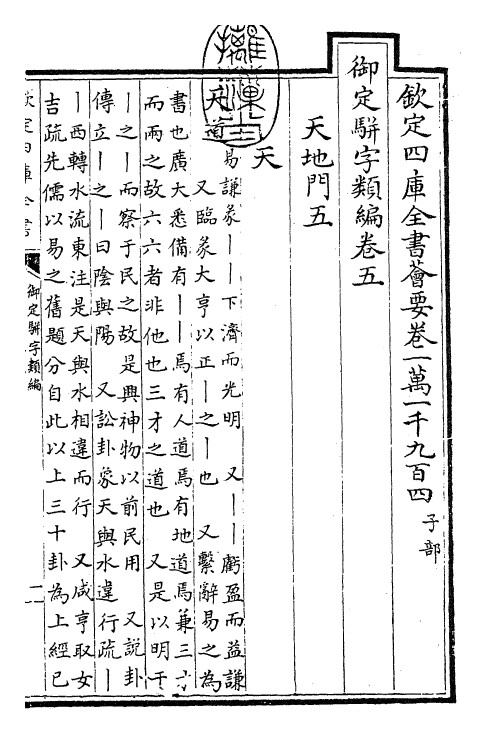 欽定四庫全書薈要卷一萬一千九百四 子部
御定駢字類編卷五
天地門五
天
天道
易謙彖丨丨下濟而光明 又丨丨虧盈而益謙
又臨彖大亨以正丨之丨也 又繫辭易之為
書也廣大悉備有丨丨焉有人道焉有地道焉兼三才
而兩之故六六者非他也三才之道也 又是以明于
丨之丨而察于民之故是興神物以前民用 又說卦
傳立丨之丨曰陰與陽 又訟卦象天與水違行疏丨
丨西轉水流東注是天與水相違而行 又咸亨取女
吉疏先儒以易之舊題分自此以上三十卦為上經已
欽定四庫全書
御定駢字類編